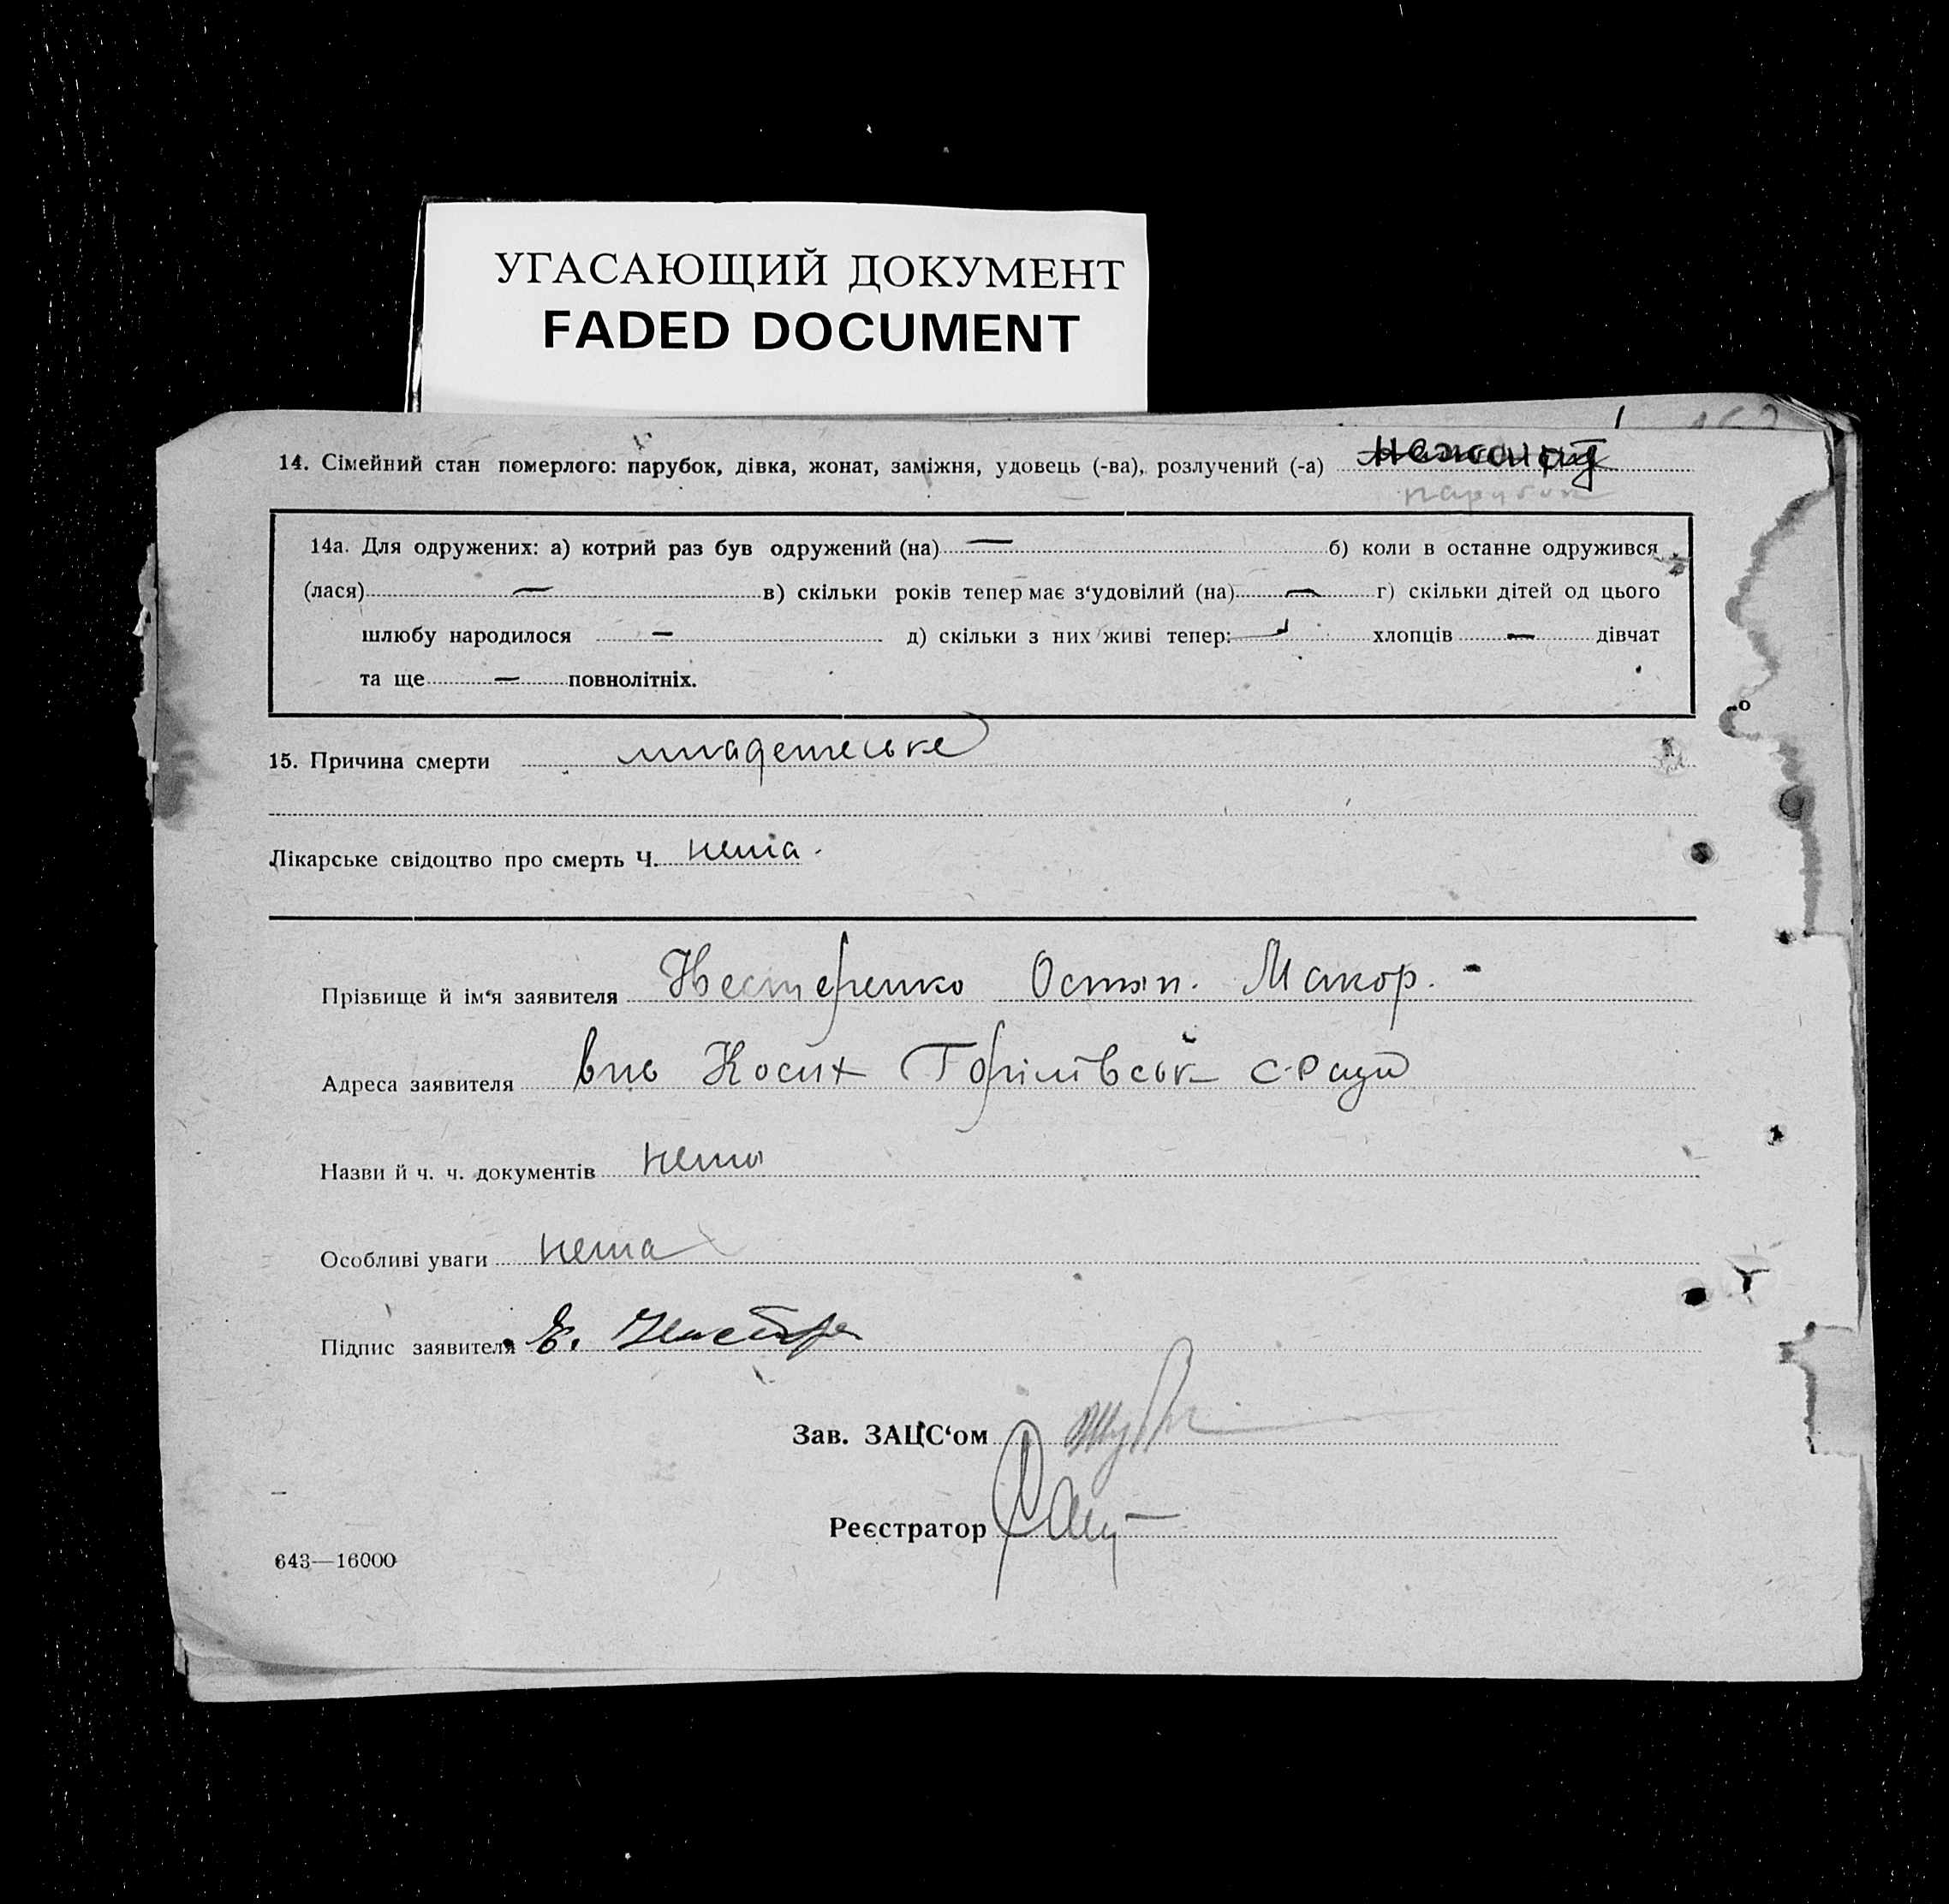 УГАСАЮЩИЙ ДОКУМЕНТ
FADED DOCUMENT
14. Сімейний стан померлого: парубок, дівка, жонат, заміжня, удовець (-ва), розлучений (-а)
парубок
14а. Для одружених: а) котрий раз був одружений (на) — б) коли в останнє одружився
(лася) — в) скільки років тепер має з‘удовілий (на) — г) скільки дітей од цього
шлюбу народилося — д) скільки з них живі тепер: хлопців — дівчат
та ще — повнолітніх.
15. Причина смерти младенеське
Лікарське свідоцтво про смерть Ч. нема.
Прізвище й ім‘я заявителя Нестеренко Остап. Макор.
Адреса заявителя Косих с-Ради
Назви й ч. ч. документів нема
Особливі уваги нема
Підпис заявителя
Зав. ЗАЦС‘ом
Реєстратор
643—16000